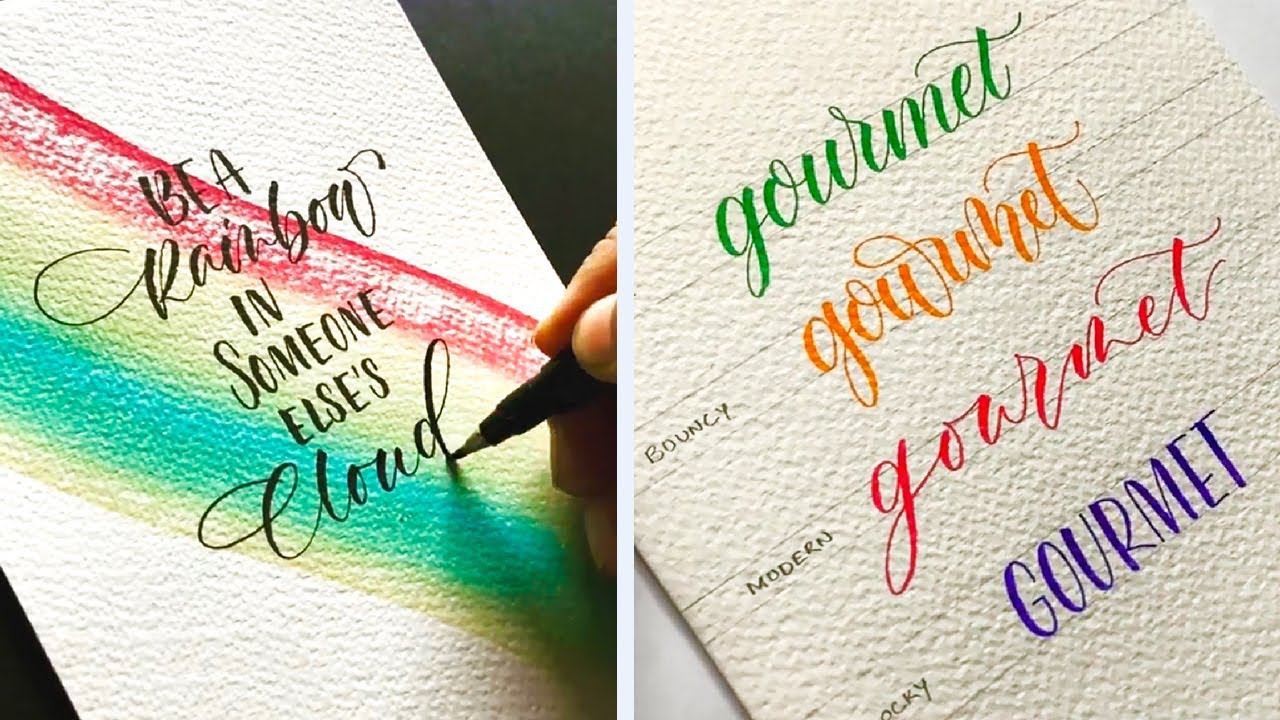 BE A
Rainbow
IN
SOMEONE
ELSE'S
Cloud
gourmet
gourmet
BOUNCY
gourmet
MODERN
GOURMET
OCKY